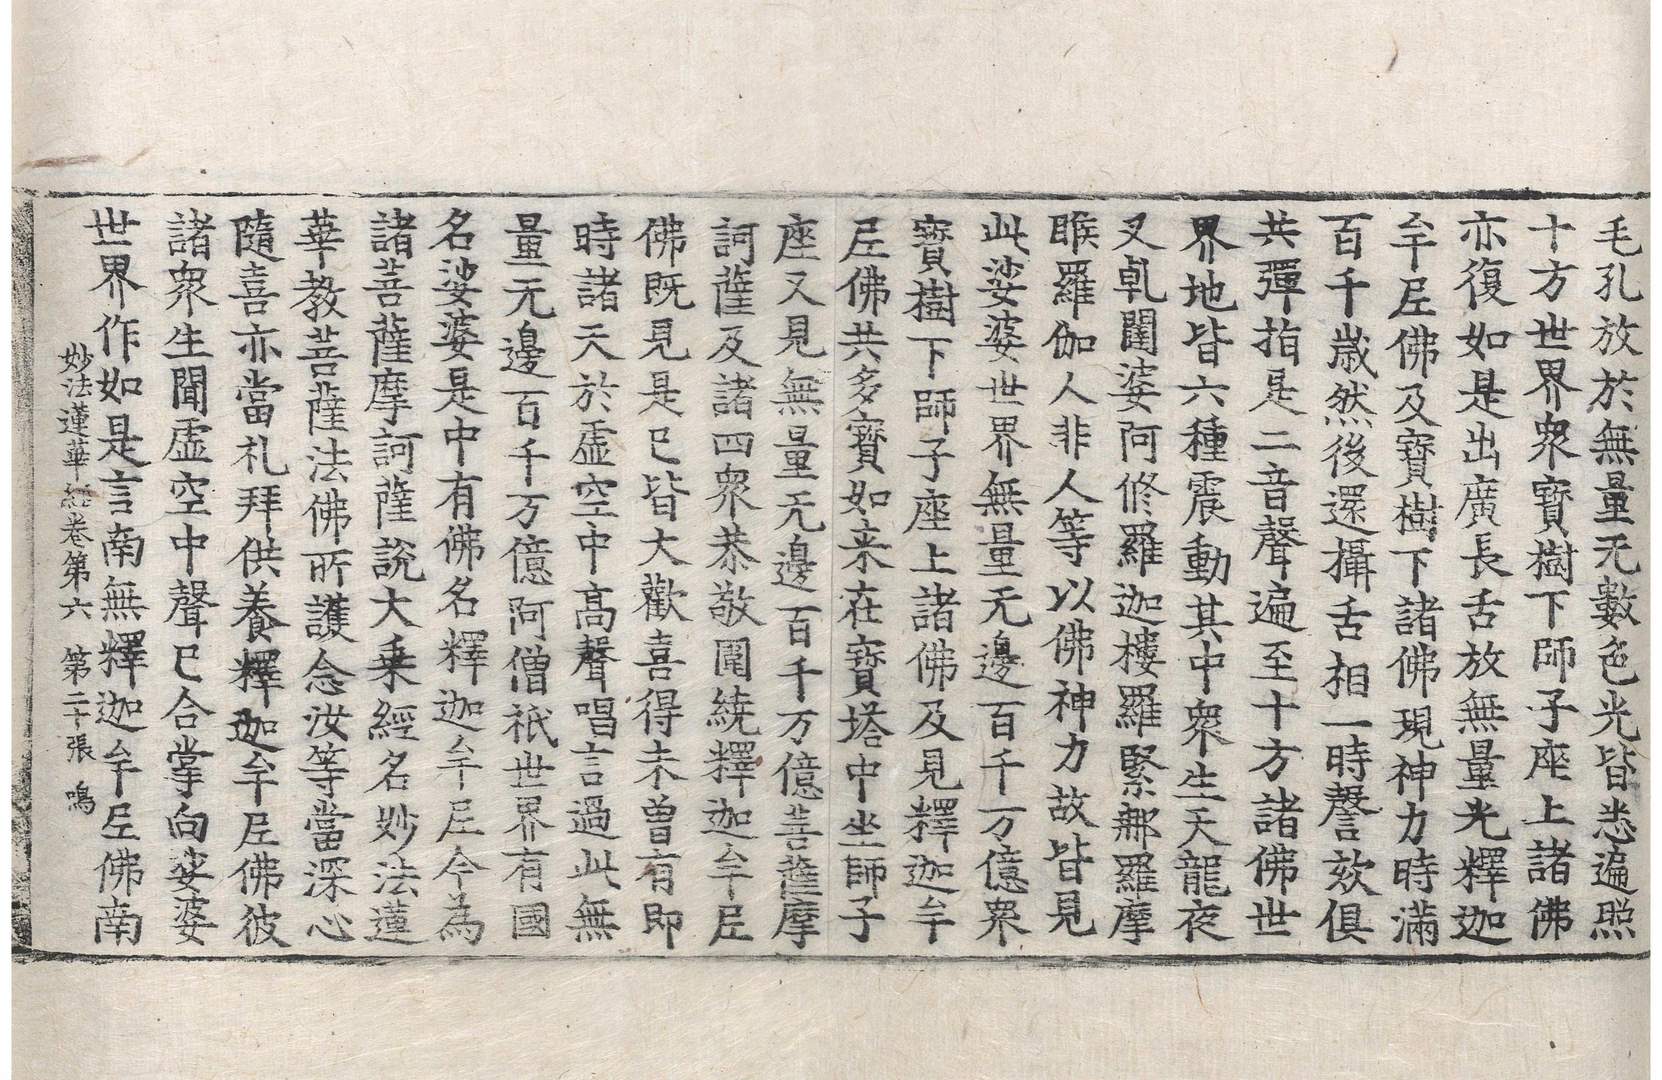 毛孔放於無量无數色光皆悉遍照
十方世界衆寶樹下師子座上諸佛
亦復如是出廣長舌放無量光釋迦
牟尼佛及寶樹下諸佛現神力時滿
百千歲然後還攝舌相一時謦欬俱
共彈指是二音聲遍至十方諸佛世
界地皆六種震動其中衆生天龍夜
叉乹闥婆阿修羅迦樓羅緊那羅摩
睺羅伽人非人等以佛神力故皆見
此娑婆世界無量无邊百千万億衆
寶樹下師子座上諸佛及見釋迦牟
尼佛共多寶如来在寶塔中坐師子
座又見無量无邊百千万億菩薩摩
訶薩及諸四衆恭敬圍繞釋迦牟尼
佛既見是已皆大歡喜得未曾有即
時諸天於虛空中高聲唱言過此無
量无邊百千万億阿僧祇世界有國
名娑婆是中有佛名釋迦牟尼今為
諸菩薩摩訶薩說大乗經名妙法蓮
華教菩薩法佛所護念汝等當深心
隨喜亦當礼拜供養釋迦牟尼佛彼
諸衆生聞虛空中聲已合掌向娑婆
世界作如是言南無釋迦牟尼佛南
妙法蓮華経卷第六 第二十張 鳴